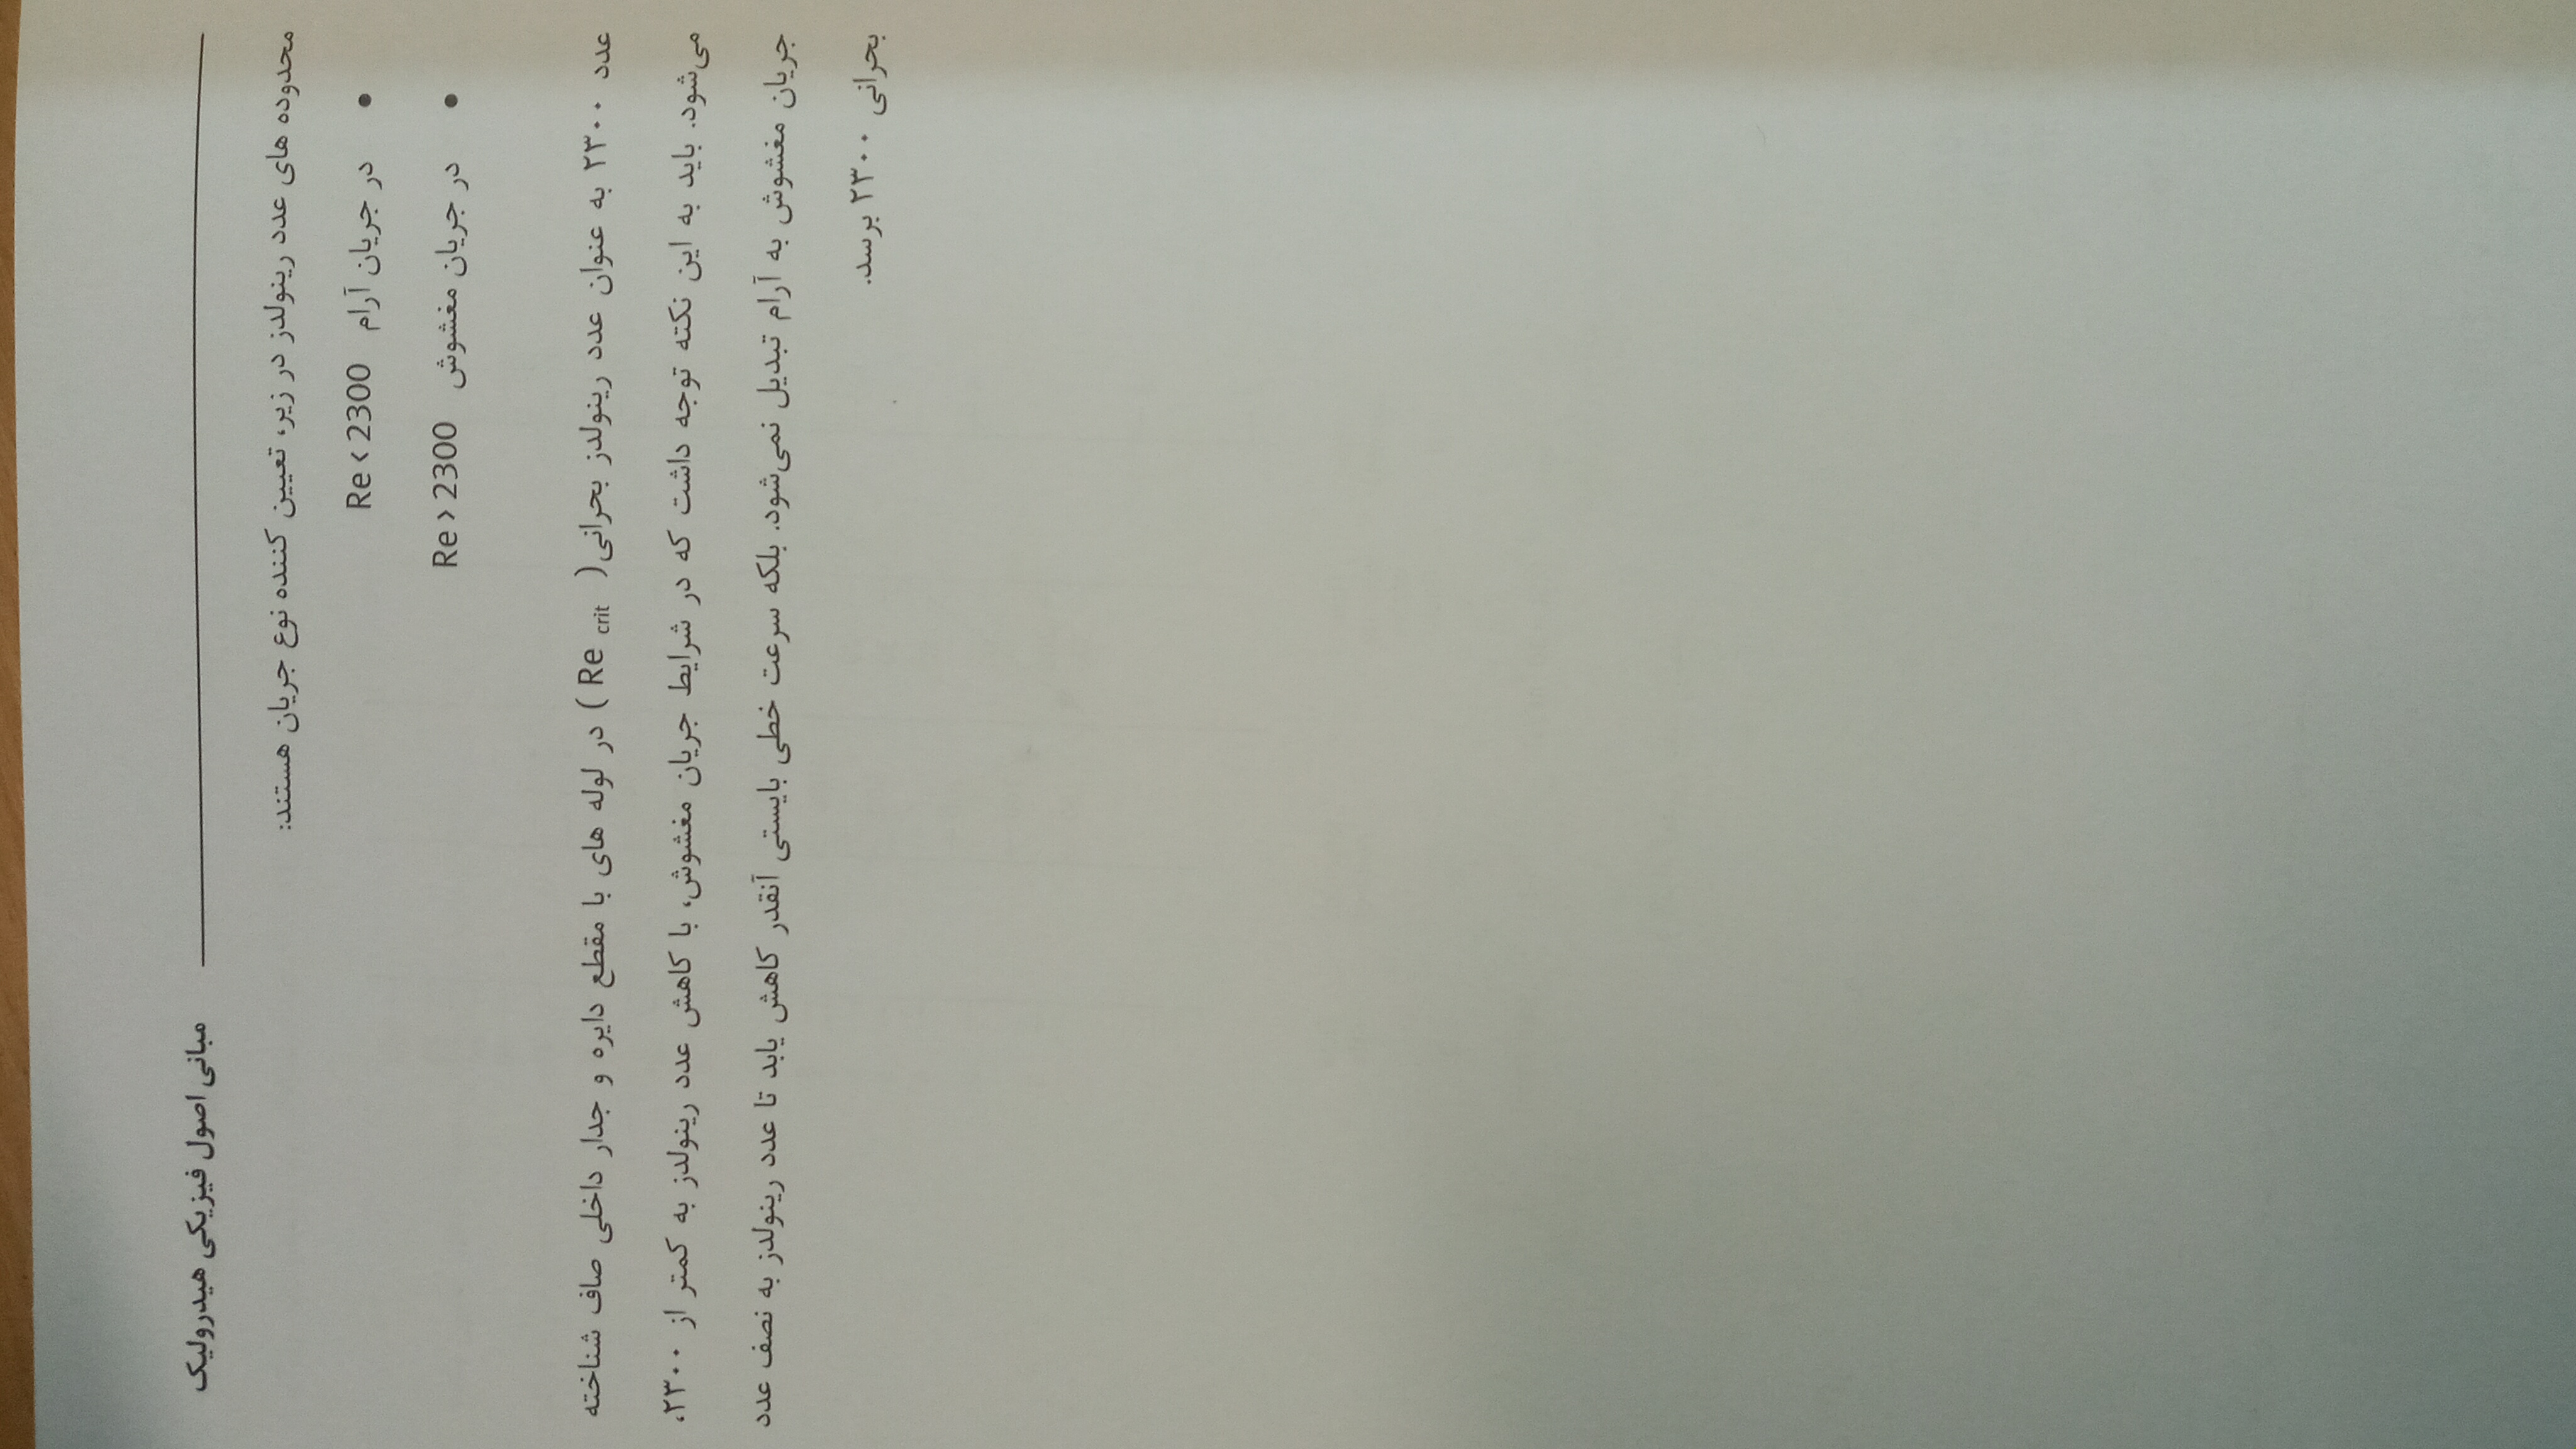 مبانی اصول فیزیکی هیدرولیک
محدوده های عدد رینولدز در زیر، تعیین کننده نوع جریان هستند:
• در جریان آرام Re < 2300
• در جریان مغشوش Re > 2300
عدد ۲۳۰۰ به عنوان عدد رینولدز بحرانی( Re crit ) در لوله های با مقطع دایره و جدار داخلی صاف شناخته
می‌شود. باید به این نکته توجه داشت که در شرایط جریان مغشوش، با کاهش عدد رینولدز به کمتر از ۲۳۰۰،
جریان مغشوش به آرام تبدیل نمی‌شود. بلکه سرعت خطی بایستی آنقدر کاهش یابد تا عدد رینولدز به نصف عدد
بحرانی ۲۳۰۰ برسد.